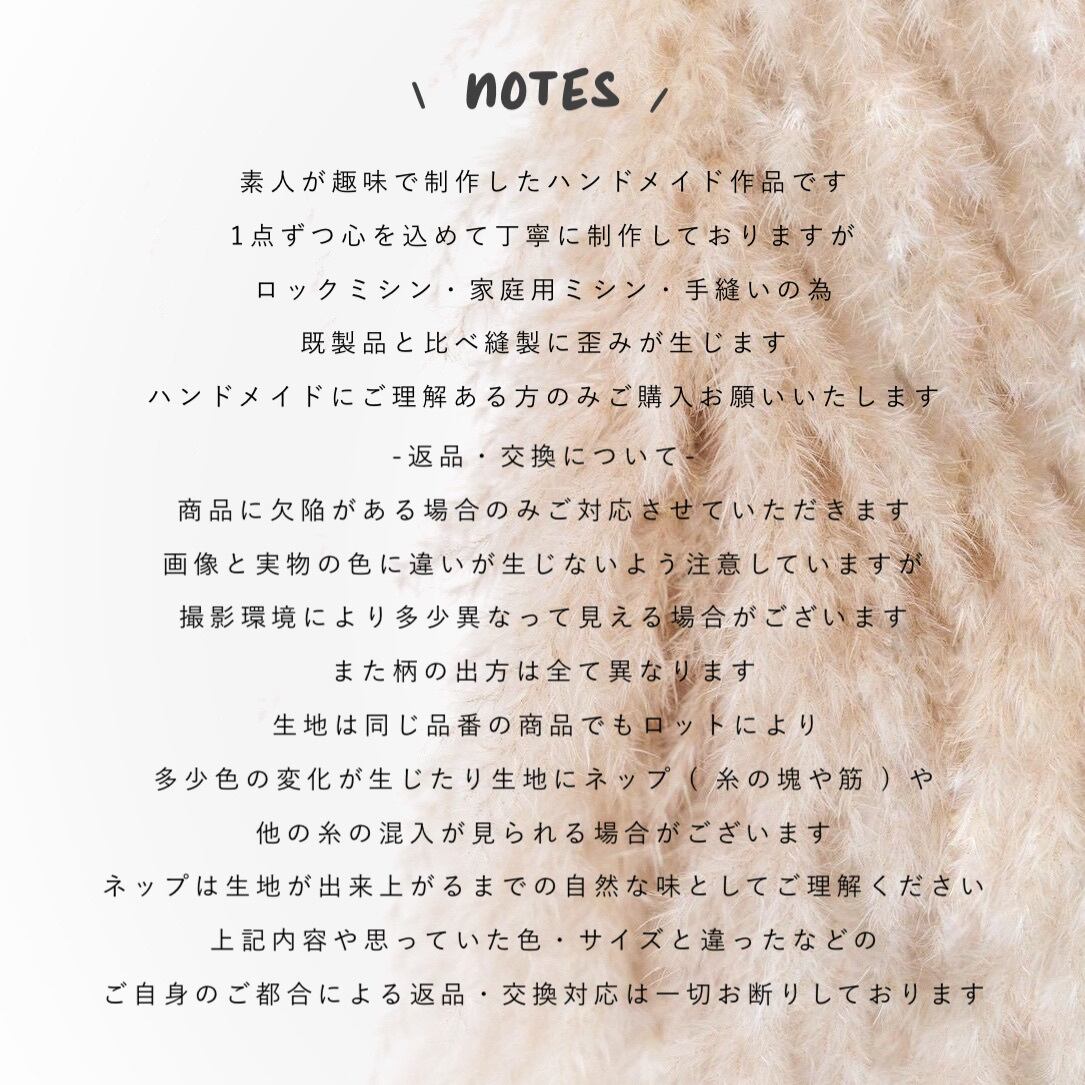 \ NOTES /
素人が趣味で制作したハンドメイド作品です
1点ずつ心を込めて丁寧に制作しておりますが
ロックミシン・家庭用ミシン・手縫いの為
既製品と比べ縫製に歪みが生じます
ハンドメイドにご理解ある方のみご購入お願いいたします
-返品・交換について-
商品に欠陥がある場合のみご対応させていただきます
画像と実物の色に違いが生じないよう注意していますが
撮影環境により多少異なって見える場合がございます
また柄の出方は全て異なります
生地は同じ品番の商品でもロットにより
多少色の変化が生じたり生地にネップ（糸の塊や筋）や
他の糸の混入が見られる場合がございます
ネップは生地が出来上がるまでの自然な味としてご理解ください
上記内容や思っていた色・サイズと違ったなどの
ご自身のご都合による返品・交換対応は一切お断りしております